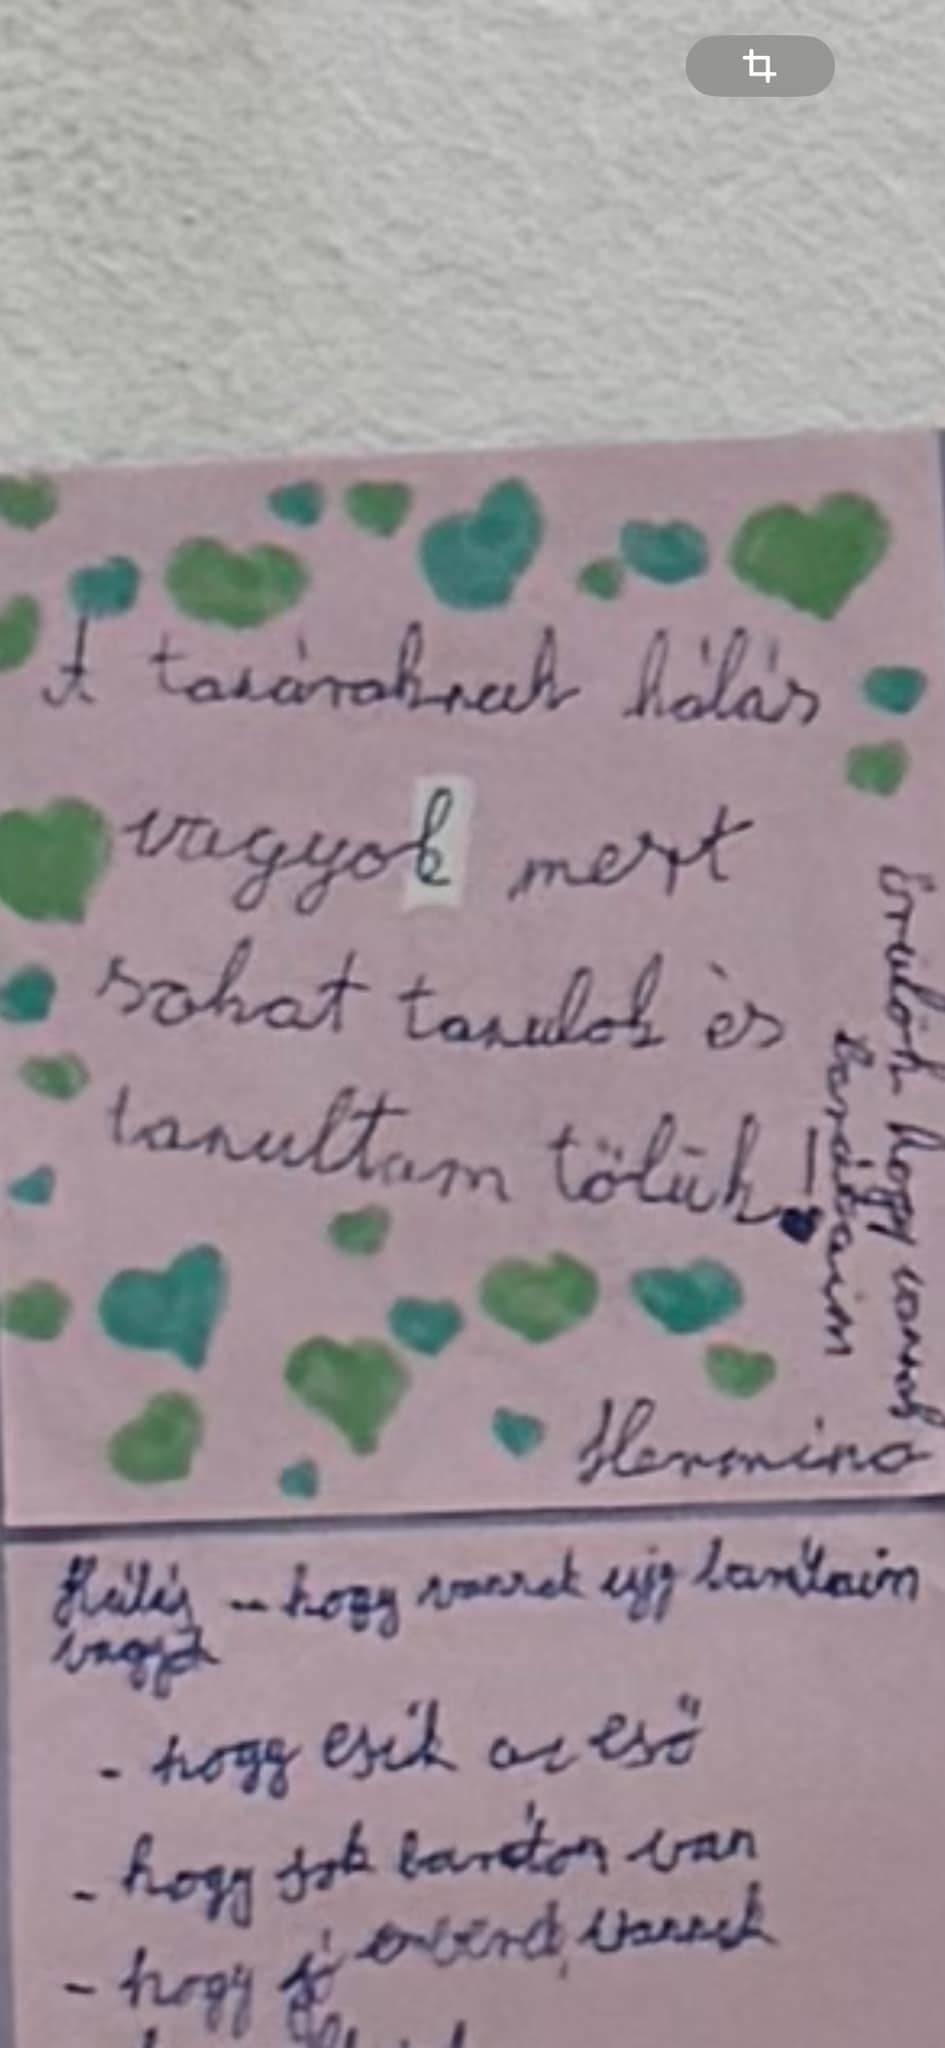 A tanároknak hálás
vagyok mert
sokat tanulok és
tanultam tölük!
Örülök hogy vannak
barátaim
Hálás - hogy vannak ujj barátaim
vagyok
- hogy esik az eső
- hogy sok barátom van
- hogy jó vannak